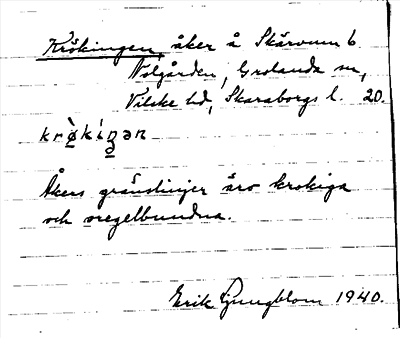 Krökingen, åker å Skärvum 6
Nolgården, Grolanda sn,
Vilske hd, Skaraborgs l. 20.
krø̀kiŋən
Åkers gränslinjer äro krokiga
och oregelbundna.
Erik Ljungblom 1940.